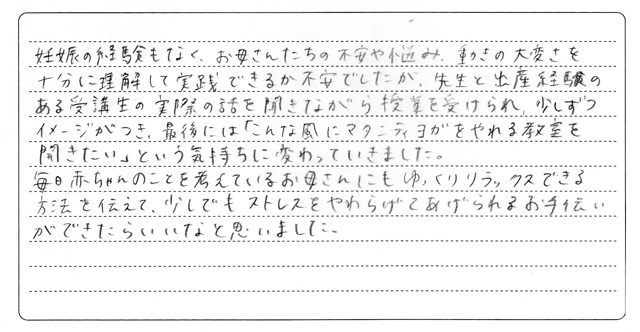 妊娠の経験もなく、お母さんたちの不安や悩み、動きの大変さを
十分に理解して実践できるか不安でしたが、先生と出産経験の
ある受講生の実際の話を聞きながら授業を受けられ、少しずつ
イメージがつき、最後には「こんな風にマタニティヨガをやれる教室を
開きたい」という気持ちに変わっていきました。
毎日赤ちゃんのことを考えているお母さんにもゆっくりリラックスできる
方法を伝えて、少しでもストレスをやわらげてあげられるお手伝い
ができたらいいなと思いました。